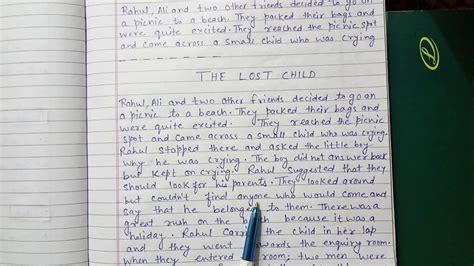 Rahul, Ali and two other friends decided to go on
a picnic to a beach. They packed their bags and
were quite excited. They reached the picnic spot
and came across a small child who was crying
THE LOST CHILD
Rahul, Ali and two other friends decided to go on
a picnic to a beach. They packed their bags and
were quite excited. They reached the picnic
spot and came across a small child who was crying.
Rahul stopped there and asked the little boy
why he was crying. The boy did not answer back
but kept on crying. Rahul suggested that they
should look for his parents. They looked around
but couldn't find anyone who would come and
say that he belonged to them. There was a
great rush on the beach because it was a
holiday. Rahul Carried the child in her lap
and they went towards the enquiry room.
When they entered the room; two men were